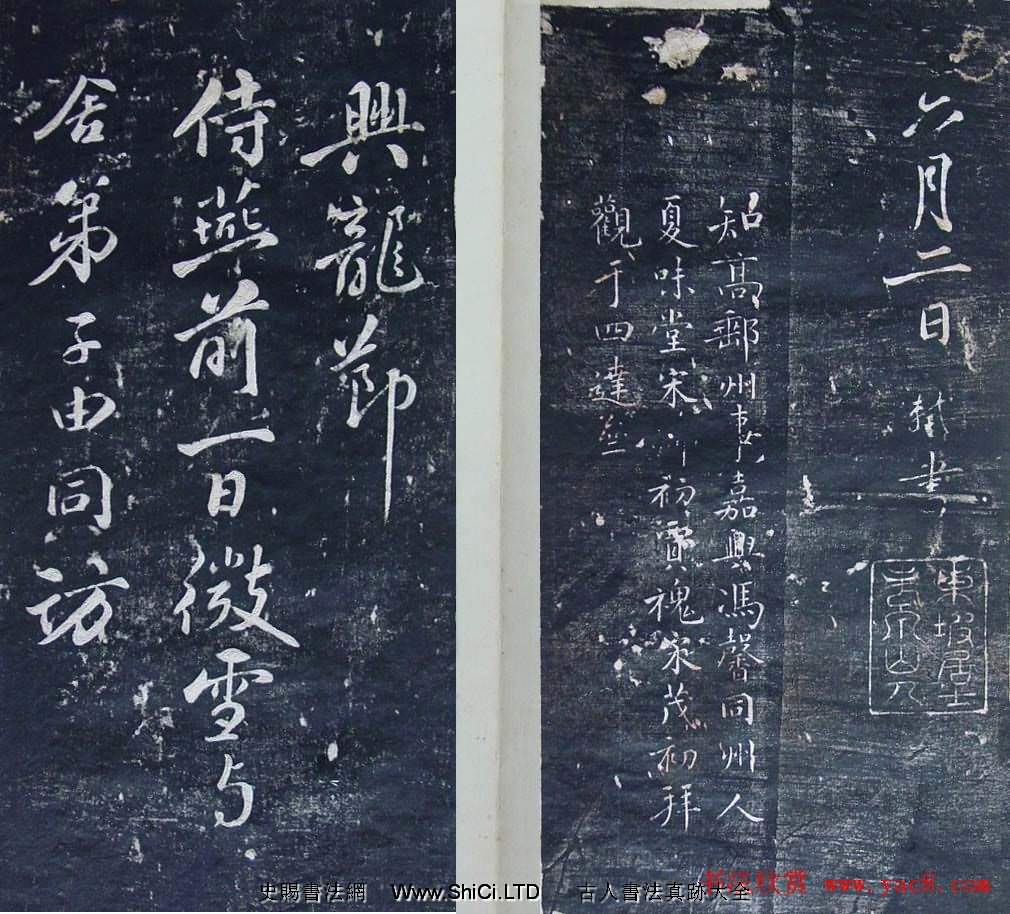 六月二日 軾書
東坡居士
老泉山人
知高郵州事嘉興馮馨同州人
夏味堂宋初賈茂初拜
觀于四達
興龍節
侍燕前一日微雪与
舍弟子由同訪
史賜書法網 Www.ShiCi.LTD 古人書法真跡大全
書法欣赏 www.yac8.com